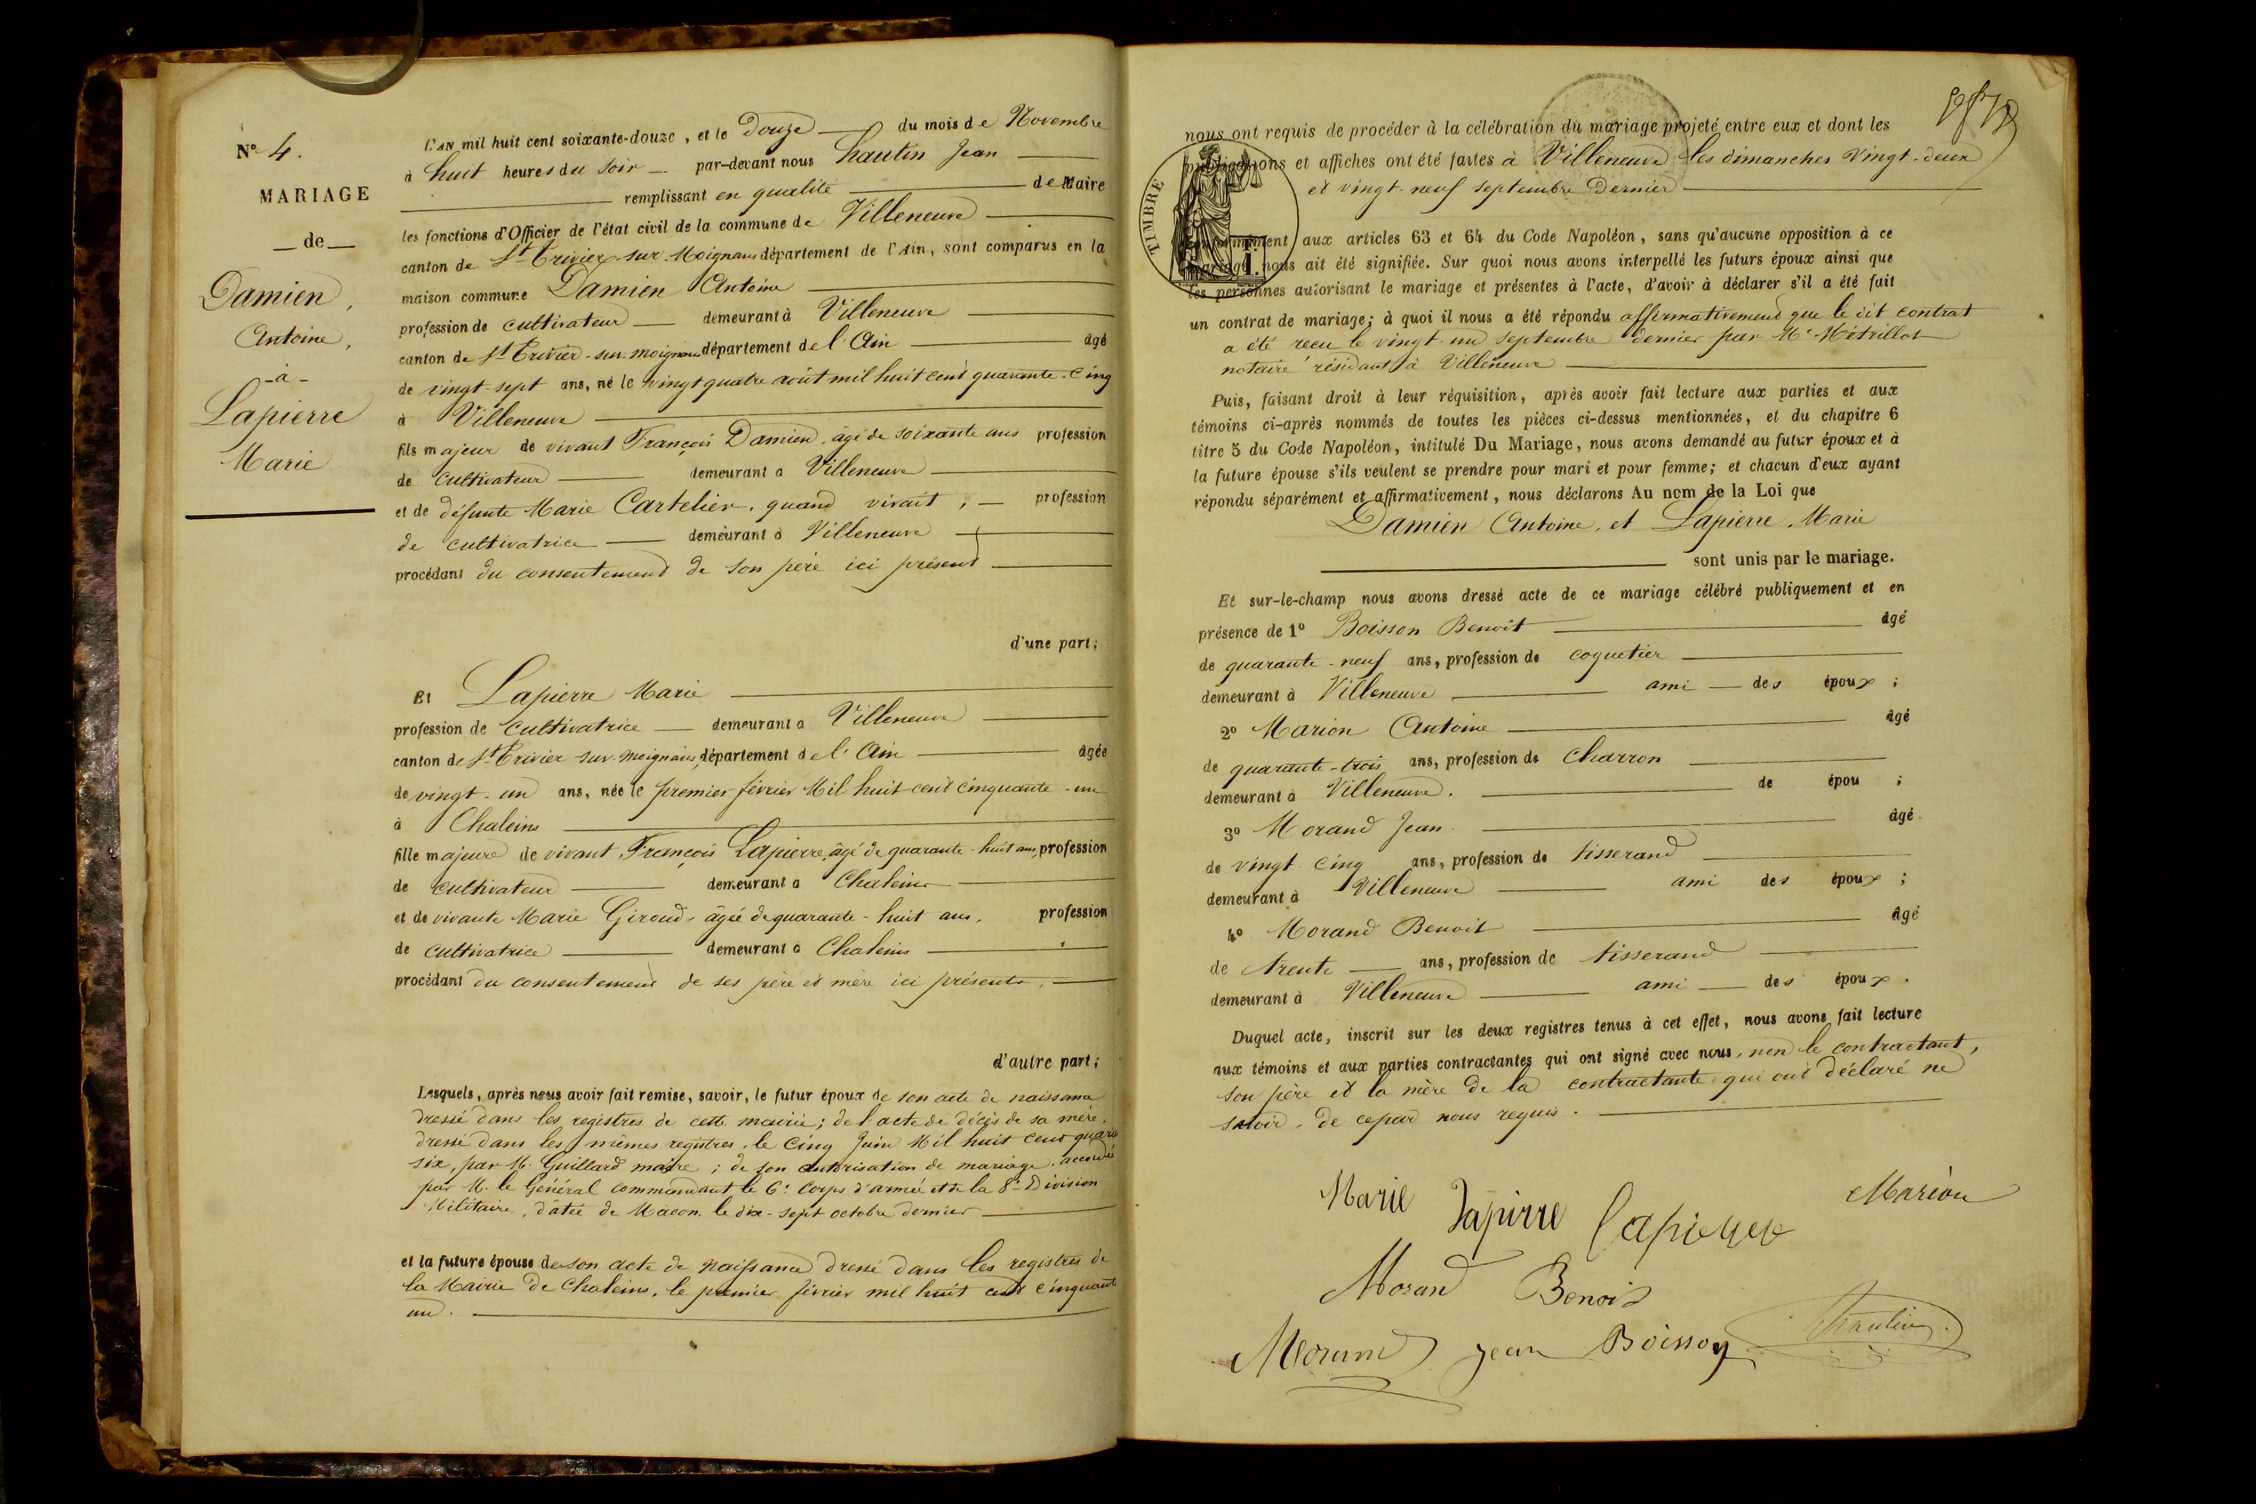 N° 4.
MARIAGE
de
Damien,
Antoine,
à
Lapierre
Marie
L'AN mil huit cent soixante-douze, et le Douze du mois de Novembre
à huit heures du soir par-devant nous Jean
remplissant en qualité de Maire
les fonctions d'Officier de l'état civil de la commune de Villeneuve
canton de St Trivier-sur-Moignans département de l'Ain, sont comparus en la
maison commune Damien Antoine
profession de cultivateur demeurant à Villeneuve
canton de St Trivier-sur-moignans département de l'Ain âgé
de vingt-sept ans, né le vingt quatre août mil huit cent quarante-cinq
à Villeneuve
fils majeur de vivant François Damien, âgé de soixante ans profession
de cultivateur demeurant à Villeneuve
et de défunte Marie Cartelier, quand vivait, profession
de cultivatrice demeurant à Villeneuve
procédant du consentement de son père ici présent
d'une part;
Et Lapierre Marie
profession de cultivatrice demeurant à Villeneuve
canton de St Trivier sur moignans, département de l'Ain âgée
de vingt-un ans, née le premier février Mil huit cent cinquante-un
à Chaleins
fille majeure de vivant François Lapierre, âgé de quarante-huit ans, profession
de cultivateur demeurant à Chaleins
et de vivante Marie Giroud, âgée de quarante-huit ans, profession
de cultivatrice demeurant à Chaleins
procédant du consentement de ses père et mère ici présents,
d'autre part;
Lesquels, après nous avoir fait remise, savoir, le futur époux de son acte de naissance
dressé dans les registres de cette mairie; de l'acte de décès de sa mère,
dressé dans les mêmes registres, le cinq Juin Mil huit cent
six, par M. Guillard maire; de son autorisation de mariage, accordée
par M. le Général commandant le 6e Corps d'armée et de la 8e Division
Militaire, datée de Mâcon, le dix-sept octobre dernier
et la future épouse de son acte de naissance dressé dans les registres de
la Mairie de Chaleins, le premier février mil huit cent cinquante
un.
nous ont requis de procéder à la célébration du mariage projeté entre eux et dont les
publications et affiches ont été faites à Villeneuve les dimanches vingt-deux
et vingt-neuf septembre Dernier
TIMBRE
conformément aux articles 63 et 64 du Code Napoléon, sans qu'aucune opposition à ce
mariage nous ait été signifiée. Sur quoi nous avons interpellé les futurs époux ainsi que
les personnes autorisant le mariage et présentes à l'acte, d'avoir à déclarer s'il a été fait
un contrat de mariage; à quoi il nous a été répondu affirmativement que le dit contrat
a été reçu le vingt-un septembre dernier par Me
notaire résidant à Villeneuve
Puis, faisant droit à leur réquisition, après avoir fait lecture aux parties et aux
témoins ci-après nommés de toutes les pièces ci-dessus mentionnées, et du chapitre 6
titre 5 du Code Napoléon, intitulé Du Mariage, nous avons demandé au futur époux et à
la future épouse s'ils veulent se prendre pour mari et pour femme; et chacun d'eux ayant
répondu séparément et affirmativement, nous déclarons Au nom de la Loi que
Damien Antoine, et Lapierre, Marie
sont unis par le mariage.
Et sur-le-champ nous avons dressé acte de ce mariage célébré publiquement et en
présence de 1° Boisson Benoit âgé
de quarante-neuf ans, profession de coquetier
demeurant à Villeneuve ami des époux;
2° Marion Antoine âgé
de quarante-trois ans, profession de charron
demeurant à Villeneuve. de épou ;
3° Morand Jean âgé
de vingt cinq ans, profession de tisserand
demeurant à Villeneuve ami des époux;
4° Morand Benoit âgé
de trente ans, profession de tisserand
demeurant à Villeneuve ami des époux.
Duquel acte, inscrit sur les deux registres tenus à cet effet, nous avons fait lecture
aux témoins et aux parties contractantes qui ont signé avec nous, non le contractant,
son père et la mère de la contractante qui ont déclaré ne
savoir, de ce par nous requis.
Marie Lapirre Lapierre Marion
Moran Benoit
Morand Jean Boisson